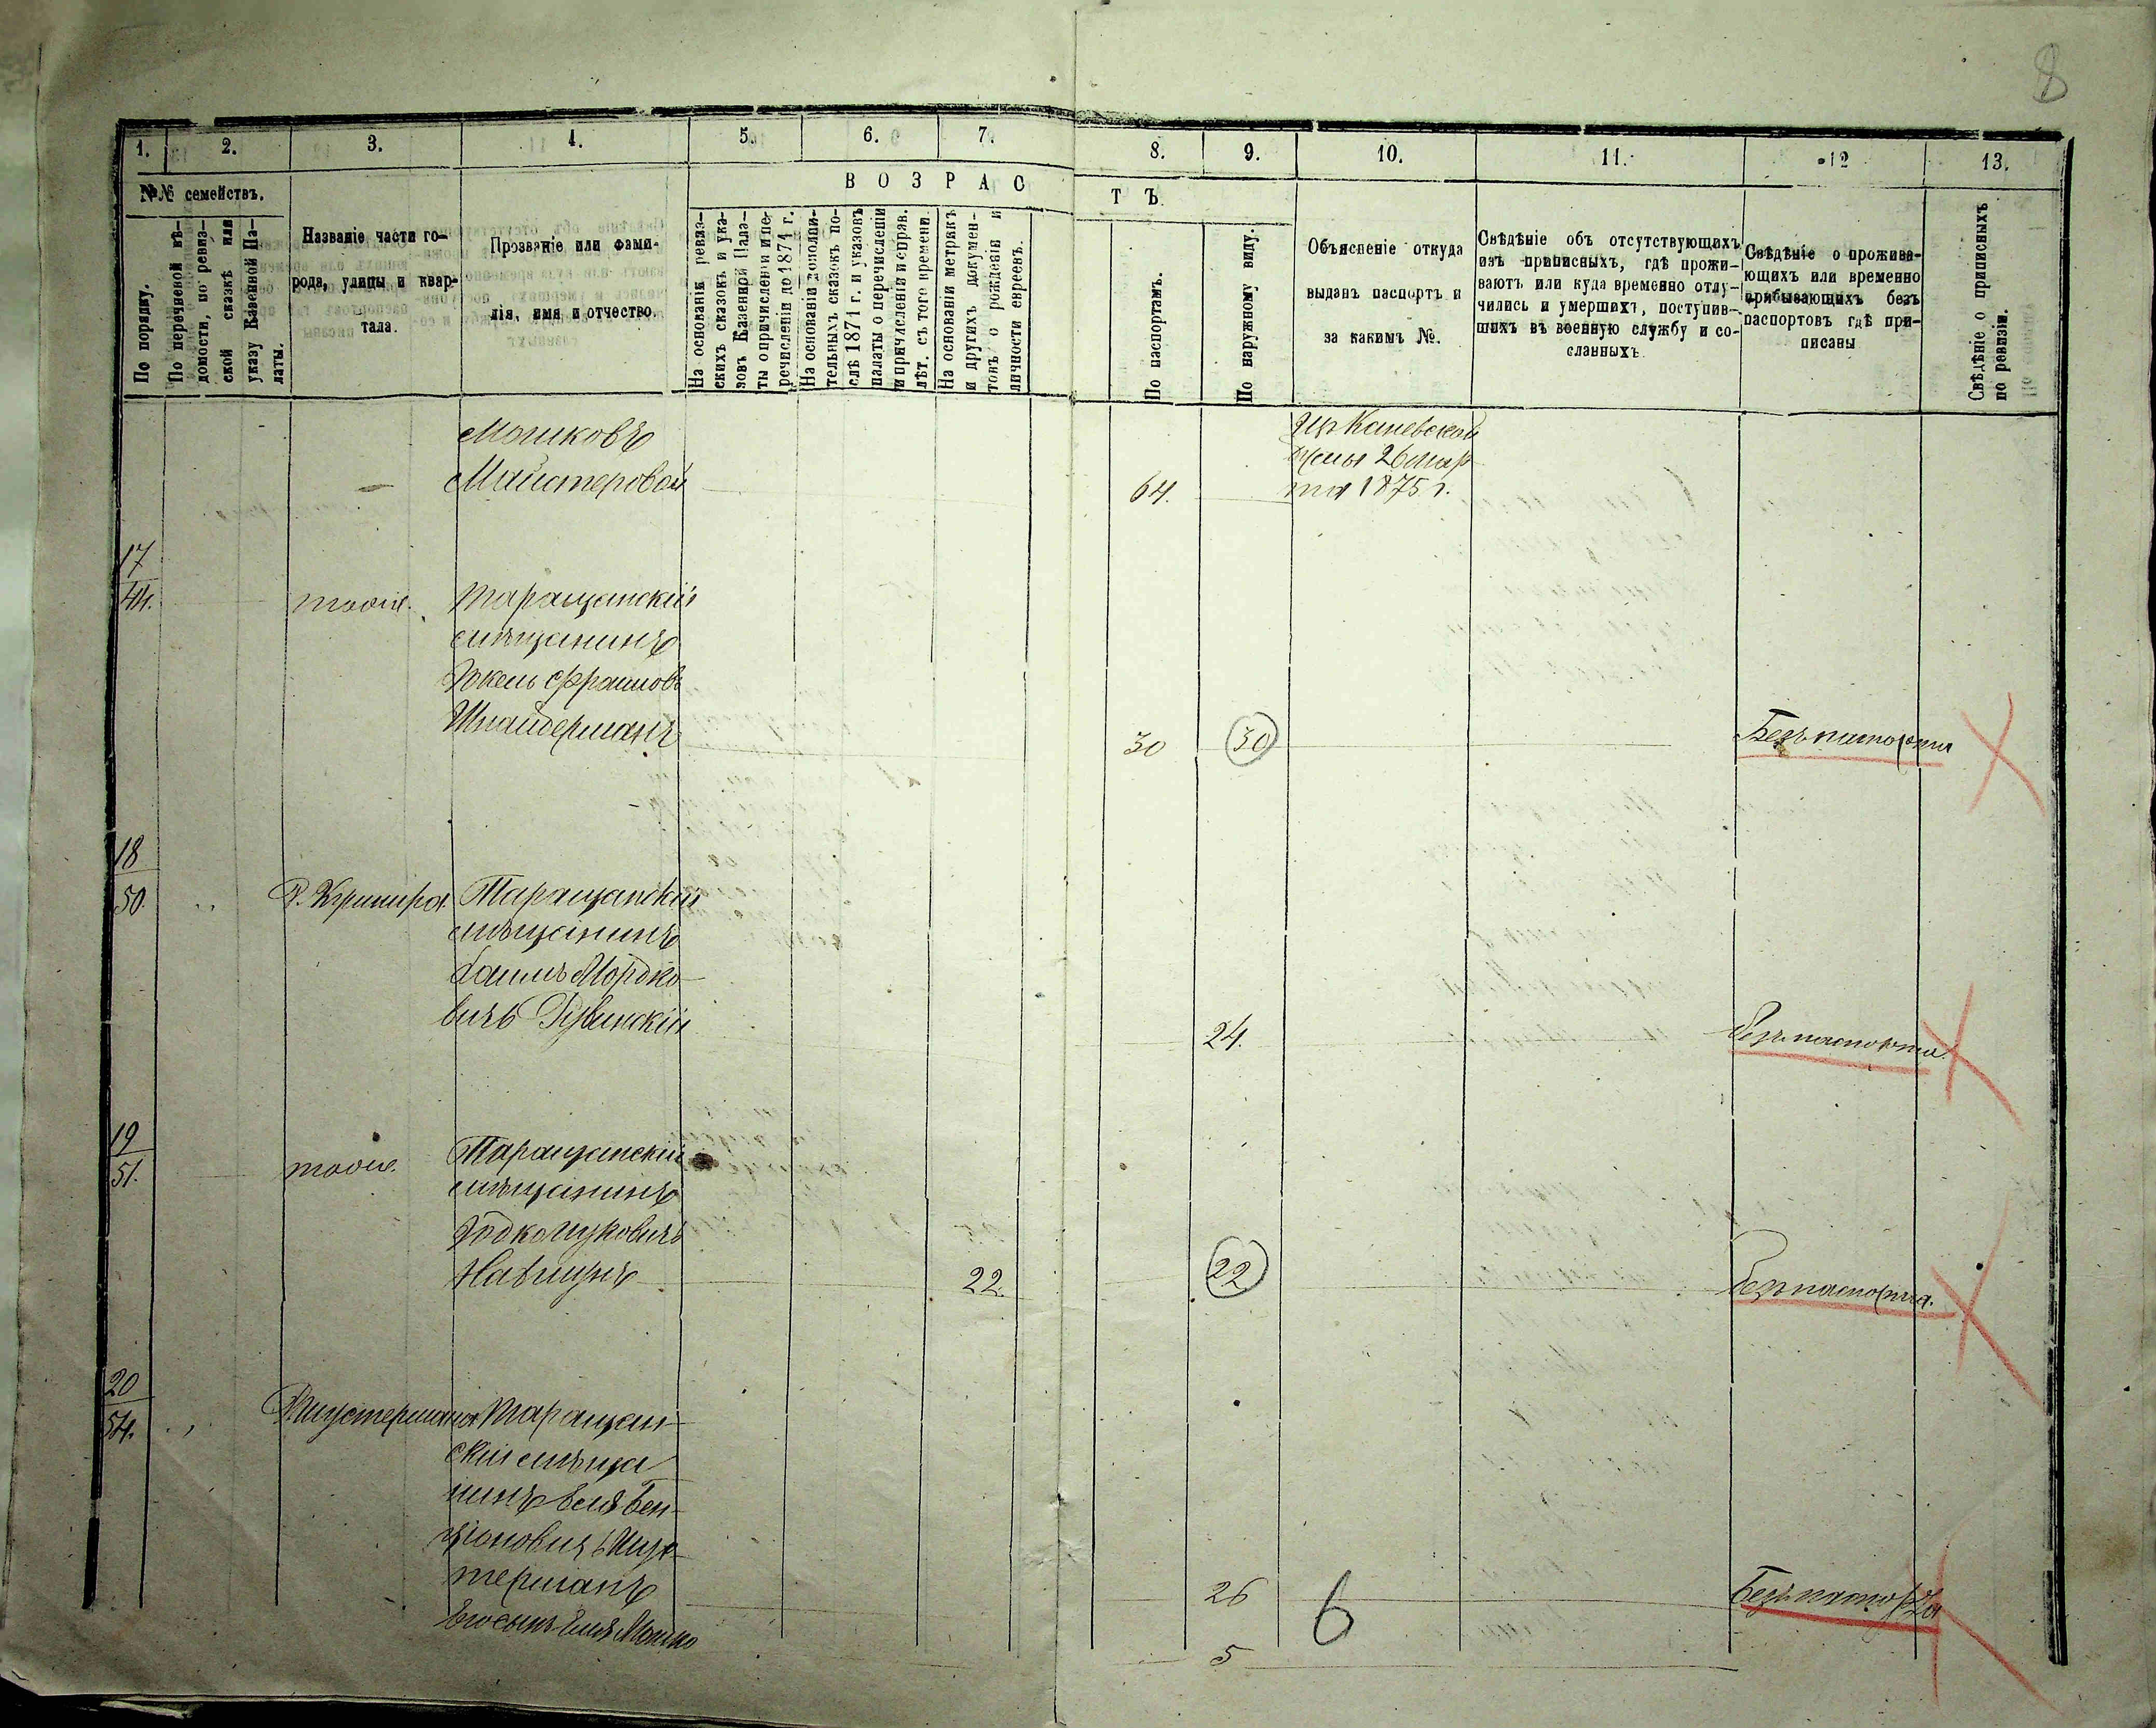 8
1. 2. 3. 4. 5. 6. 7. 8. 9. 10. 11. 12 13.
№№ семействъ.
ВОЗРАСТЪ
По порядку.
По перечневой вѣ-
домости, по ревиз-
ской сказкѣ или
указу Казенной Па-
латы.
Названіе части го-
рода, улицы и квар-
тала.
Прозваніе или фами-
лія, имя и отчество.
На основаніи ревиз-
скихъ сказокъ и ука-
зовъ Казенной Пала-
ты о причисленіи и пе-
речисленіи до 1871 г.
На основаніи дополни-
тельныхъ сказокъ по-
слѣ 1871 г. и указовъ
палаты о перечисленіи
и причисленіи и справ.
лѣт. съ того времени.
На основаніи метрикъ
и другихъ докумен-
товъ о рожденіи и
личности евреевъ.
По паспортамъ.
По наружному виду.
Объясненіе откуда
выданъ паспортъ и
за какимъ №.
Свѣдѣніе объ отсутствующихъ
изъ приписныхъ, гдѣ прожи-
ваютъ или куда временно отлу-
чились и умершихъ, поступив-
шихъ въ военную службу и со-
сланныхъ.
Свѣдѣніе о прожива-
ющихъ или временно
прибывающихъ безъ
паспортовъ гдѣ при-
писаны
Свѣдѣніе о приписныхъ
по ревизіи.
Мошковъ
Майстеровой 64.
Каневской
26 мар-
та 1875 г.
17
44. тоже. Таращанскій
мѣщанинъ
Шнайдерманъ 30 30 Безъ паспорта
18
50. Таращанскій
мѣщанинъ
Хаимъ Мордко-
вичъ 24. Безъ паспорта.
19
51. тоже. Таращанскій
мѣщанинъ
22. 22 Безъ паспорта.
20
54. Таращан-
скій мѣща
нинъ Беня Бен-
ціоновичъ Шус-
терманъ 26 6 Безъ паспорта
Его сынъ Мошко 5